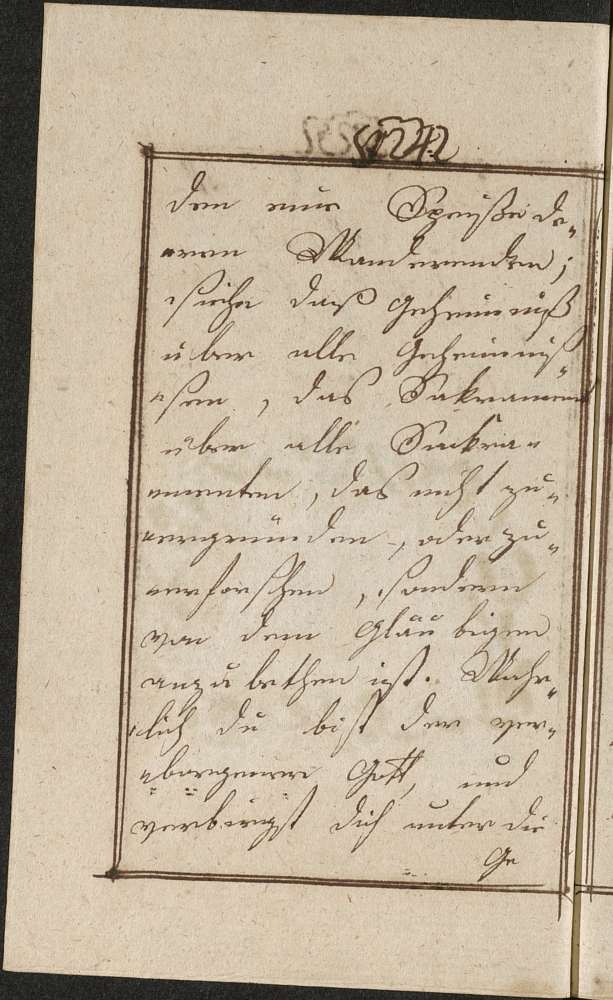 den eine Speyße de„
„ren Wanderenden;
siehe daß Geheimniß
über alle Geheimniß„
„sen, das Sakrament
über alle Sackra„
menten, das nicht zu„
„ergründen, oder zu„
„erforschen, sondern
von dem Gläubigen
anzubethen ist. Wahr„
„lich du bist der ver„
„borgenere Gott, und
verbirgst dich unter die
Ge